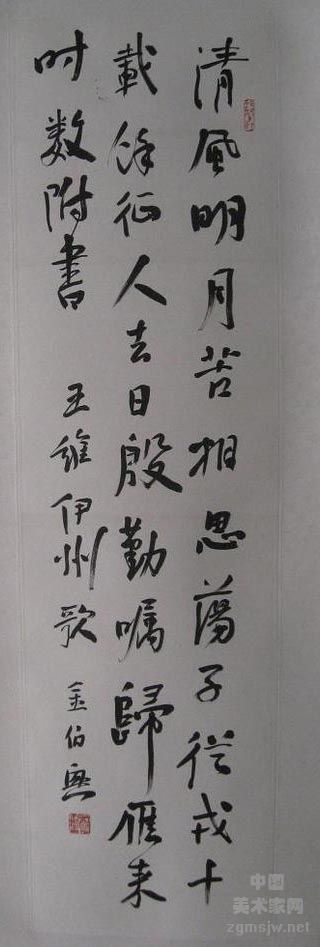 清風明月苦相思蕩子從戎十
載餘征人去日殷勤嘱歸雁来
时数附書 王維伊州歌 金伯興
中国
美术家网
zgmsjw.net